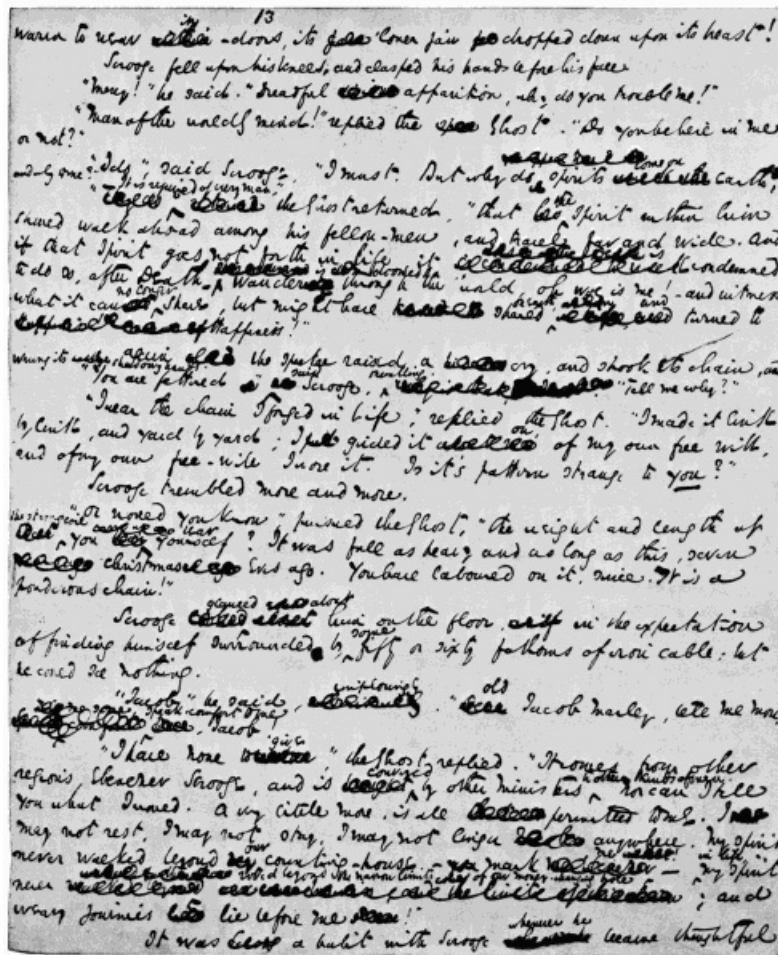 13
warm to wear in-doors, its lower jaw dropped down upon its breast!
Scrooge fell upon his knees, and clasped his hands before his face
"Mercy!" he said. "Dreadful apparition, why do you trouble me!"
"Man of the worldly mind!" replied the Ghost. "Do you believe in me
or not?"
"I do", said Scrooge, "I must. But why do spirits the earth
"It is required of every man,"
the Ghost returned, "that the Spirit within him
should walk abroad among his fellow-men, and travel far and wide. And
if that Spirit goes not forth in life, it is condemned
to do so, after Death. It is doomed to wander through the world, oh woe is me! - and witness
what it cannot share, but might have shared on earth and turned to
Happiness!"
again the spectre raised a cry, and shook its chain, and
wrung its shadowy hands.
"You are fettered said Scrooge, trembling. "Tell me why?"
"I wear the chain I forged in Life," replied the Ghost. "I made it link
by link, and yard by yard; I girded it on of my own free will,
and of my own free-will I wore it. Is it's pattern strange to you?"
Scrooge trembled more and more.
"or would you know" pursued the Ghost, "the weight and length of
the strong coil you bear yourself? It was full as heavy and as long as this, seven
christmas Eves ago. You have laboured on it, since. It is a
ponderous chain!"
Scrooge glanced about him on the floor, in the expectation
of finding himself surrounded by some fifty or sixty fathoms of iron cable: but
he could see nothing.
"Jacob" he said, imploringly. "old Jacob Marley, tell me more
speak comfort to me, Jacob."
"I have none to give," the Ghost replied. "It comes from other
regions, Ebenezer Scrooge, and is conveyed by other ministers, to other kinds of men. Nor can I tell
you what I would. A very little more, is all permitted to me. I
may not rest, I may not stay, I may not linger anywhere. My spirit
never walked beyond our counting-house - mark me! - in life my spirit
never roved beyond the narrow limits of our money-changing hole; and
weary journies lie before me!"
It was a habit with Scrooge whenever he became thoughtful